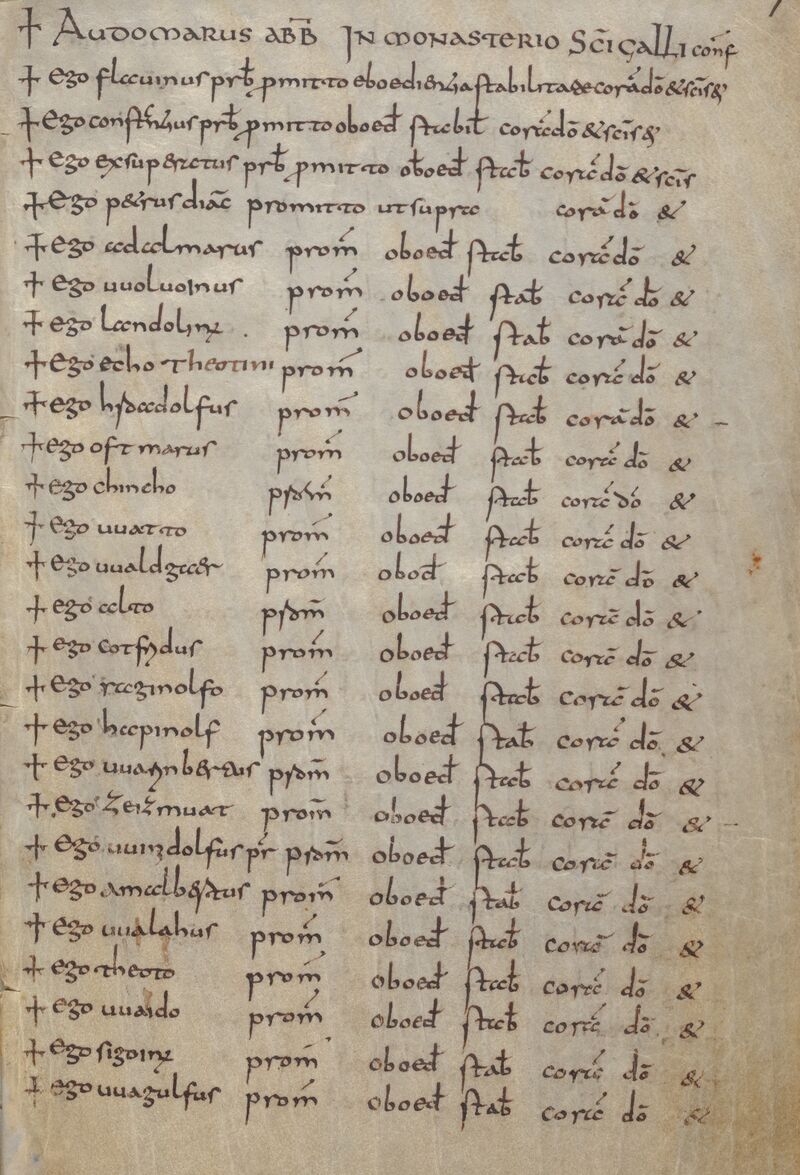 + Audomarus abb̄ In monasterio Sc̄i Galli conf
+ ego flauinus prb̄ ꝓmitto eboedientia stabilitate corā dō & sc̄is &
+ ego constentius prb̄ ꝓmitto oboed̄ stabil̄ corā dō & sc̄is &
+ ego exsuperatus prb̄ ꝓmitto oboed̄ stab̄ corā dō & sc̄is
+ ego petrus diac̄ promitto ut supra corā dō &
+ ego adalmarus prom̄ oboed̄ stab̄ corā dō &
+ ego uuoluoinus prom̄ oboed̄ stab̄ corā dō &
+ ego prom̄ oboed̄ stab̄ corā dō &
+ ego echo Theotini prom̄ oboed̄ stab̄ corā dō &
+ ego prom̄ oboed̄ stab̄ corā dō &
+ ego oftmarus prom̄ oboed̄ stab̄ corā dō &
+ ego chincho oboed̄ stab̄ corā dō &
+ ego uuatto prom̄ oboed̄ stab̄ corā dō &
+ ego uualdgaer prom̄ obod̄ stab̄ corā dō &
+ ego alto oboed̄ stab̄ corā dō &
+ ego cotfridus prom̄ oboed̄ stab̄ corā dō &
+ ego raginolfo prom̄ oboed̄ stab̄ corā dō &
+ ego hapinolf prom̄ oboed̄ stab̄ corā dō &
+ ego oboed̄ stab̄ corā dō &
+ ego prom̄ oboed̄ stab̄ corā dō &
+ ego oboed̄ stab̄ corā dō &
+ ego amalbertus prom̄ oboed̄ stab̄ corā dō &
+ ego uualahus prom̄ oboed̄ stab̄ corā dō &
+ ego theoto prom̄ oboed̄ stab̄ corā dō &
+ ego uualdo prom̄ oboed̄ stab̄ corā dō &
+ ego prom̄ oboed̄ stab̄ corā dō &
+ ego uuagulfus prom̄ oboed̄ stab̄ corā dō &